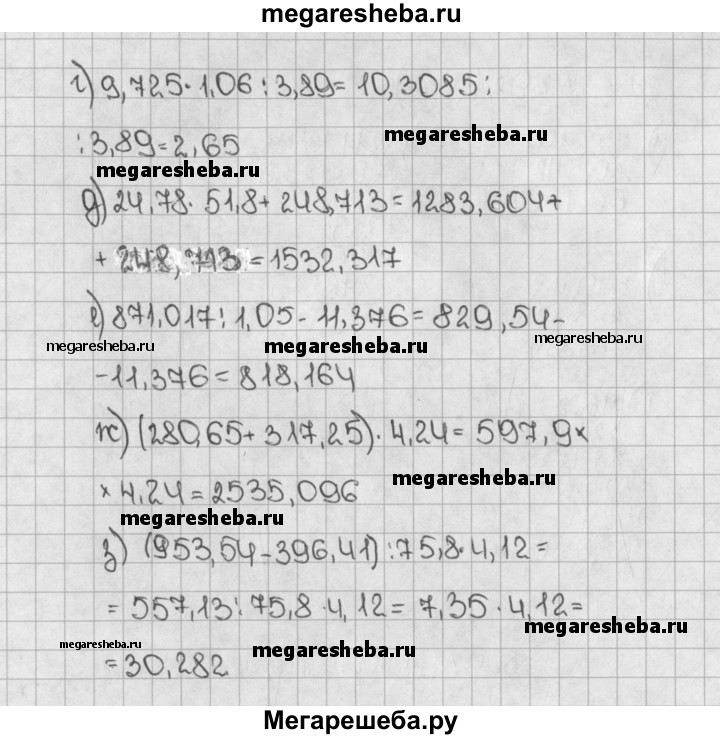 megaresheba.ru
г) 9,725·1,06:3,89=10,3085:
:3,89=2,65
megaresheba.ru
megaresheba.ru
д) 24,78·51,8+248,713=1283,604+
+248,713=1532,317
е) 871,017:1,05-11,376=829,54-
megaresheba.ru
megaresheba.ru
megaresheba.ru
-11,376=818,164
ж) (280,65+317,25)·4,24=597,9×
×4,24=2535,096
megaresheba.ru
megaresheba.ru
з) (953,54-396,41):75,8·4,12=
=557,13:75,8·4,12=7,35·4,12=
megaresheba.ru
megaresheba.ru
megaresheba.ru
=30,282
Мегарешеба.ру